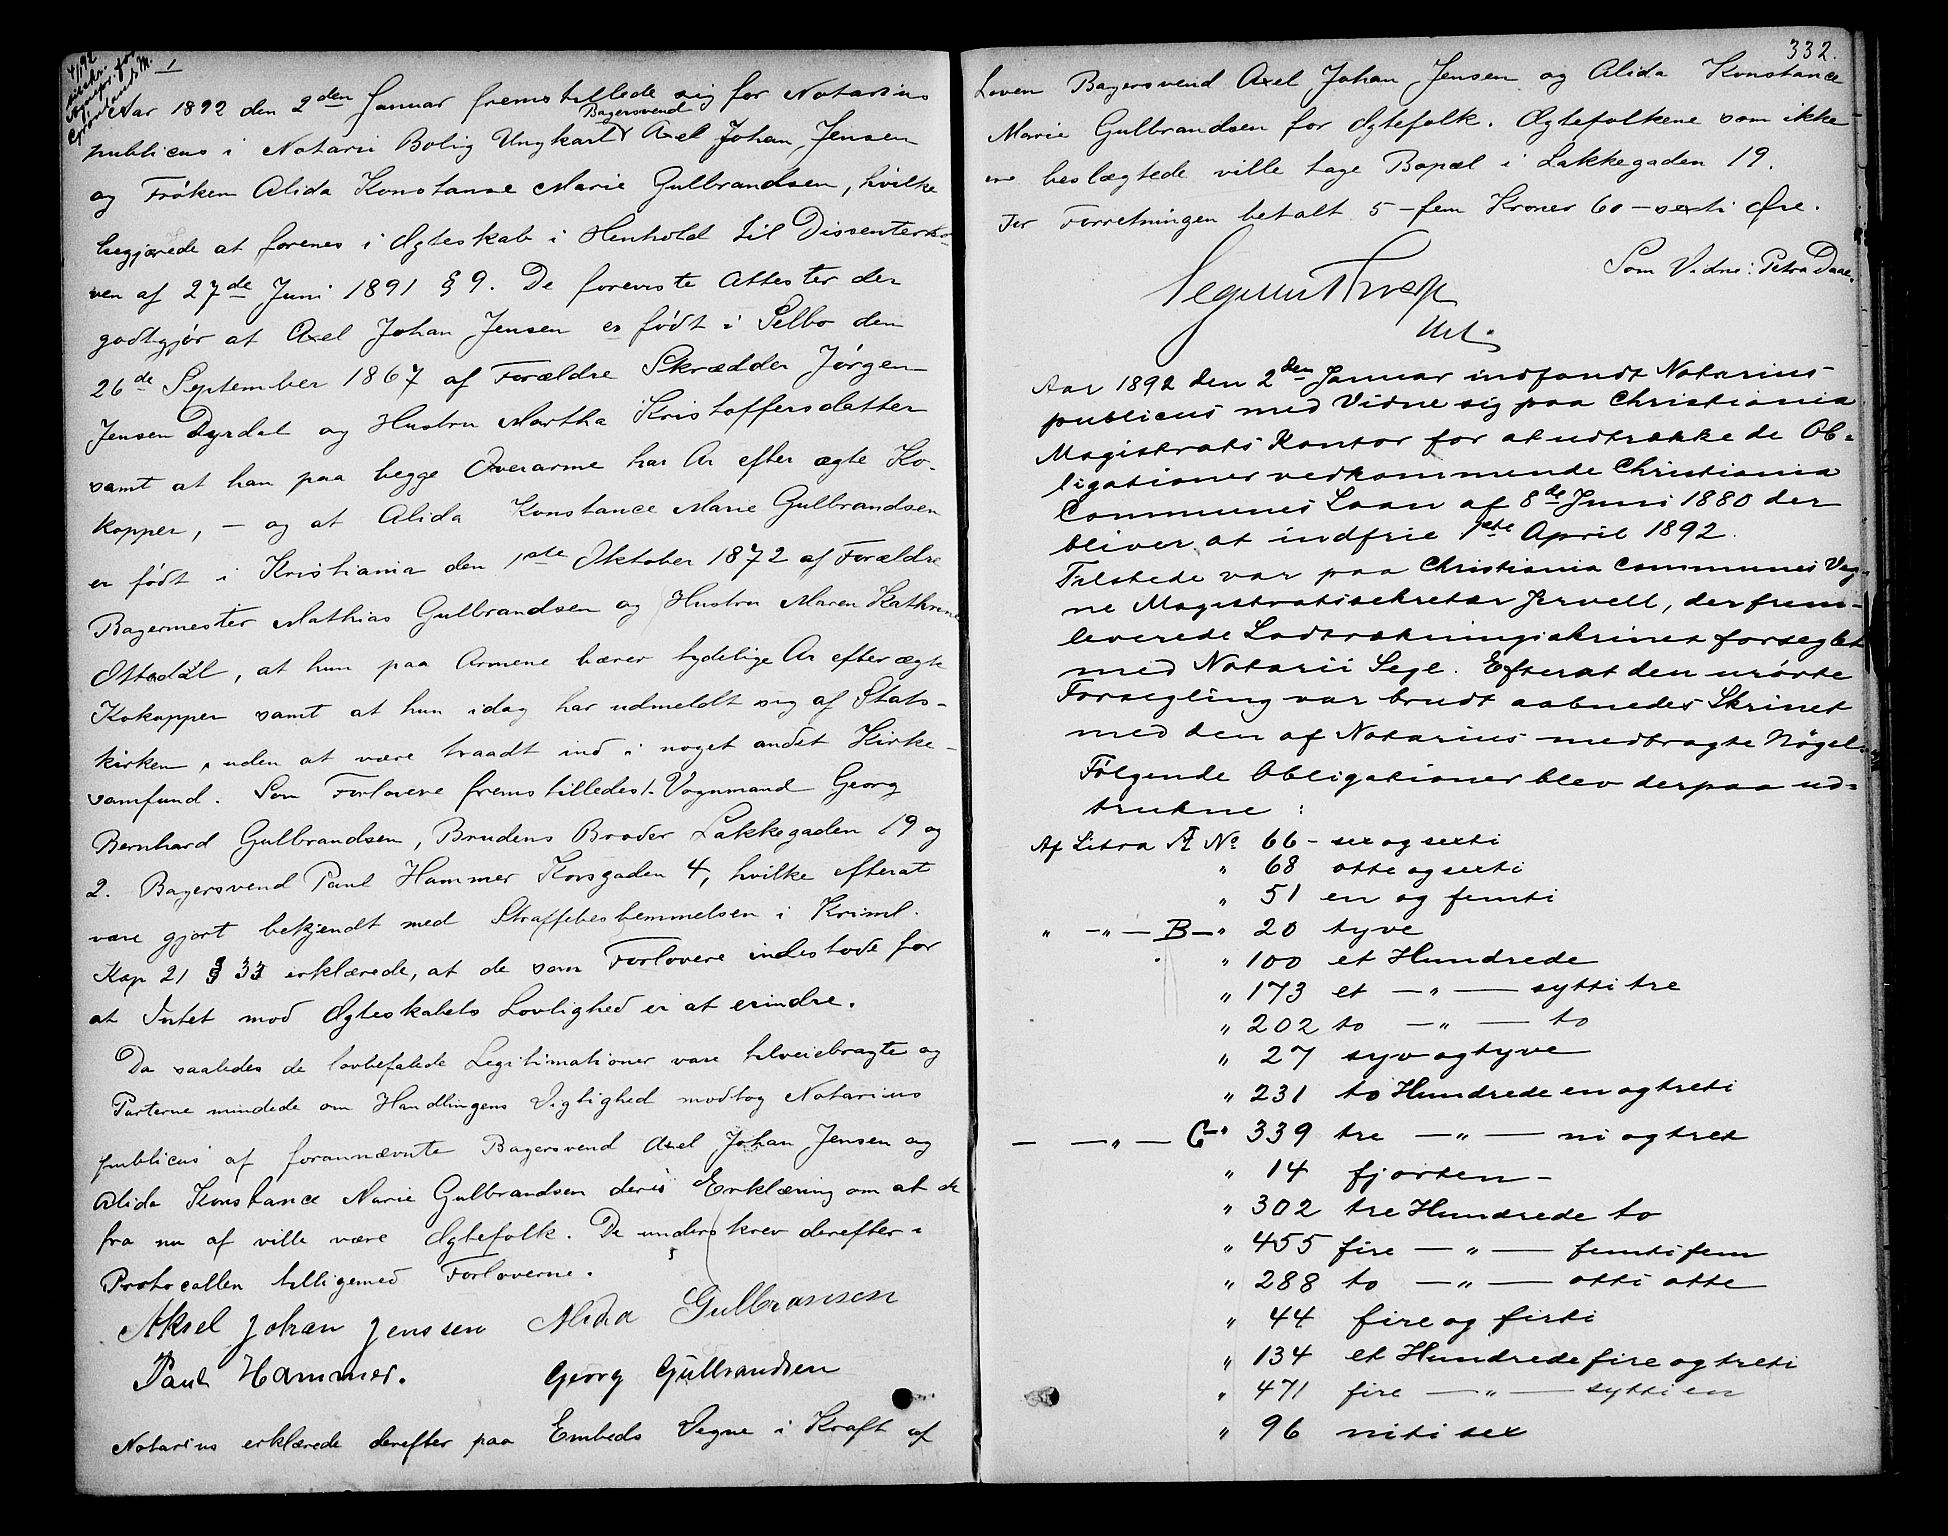 4/1 92
1
Aar 1892 den 2den Januar fremstillede sig for Notarius
Bagersvend
publicus i Notarii Bolig Ungkarl Axel Johan Jensen
og Frøken Alida Konstanse Marie Gulbrandsen, hvilke
begjærede at forenes i Ægteskab i Henhold til Dissenterlo-
ven af 27de Juni 1891 § 9. De foreviste Attester der
godtgjør at Axel Johan Jensen er født i Selbo den
26de September 1867 af Forældre Skrædder Jørgen
Jensen Dyrdal og Hustru Martha Kristoffersdatter
samt at han paa begge Overarme har Ar efter ægte Ko-
kopper, – og at Alida Konstance Marie Gulbrandsen
er født i Kristiania den 1ste Oktober 1872 af Forældre
Bagermester Mathias Gulbrandsen og Hustru Maren Kathrine
Ottadal, at hun paa Armene bærer tydelige Ar efter ægte
Kokopper samt at hun idag har udmeldt sig af Stats-
kirken, uden at være traadt ind i noget andet Kirke-
samfund. Som Forlovere fremstilledes 1. Vognmand Georg
Bernhard Gulbrandsen, Brudens Broder Lakkegaden 19 og
2. Bagersvend Paul Hammer Korsgaden 4, hvilke efterat
være gjort bekjendt med Straffebestemmelsen i Kriml.
Kap 21 § 33 erklærede, at de som Forlovere indestode for
at Intet mod Ægteskabets Lovlighed er at erindre.
Da saaledes de lovbefalede Legitimationer vare tilveiebragte og
Parterne mindede om Handlingens Vigtighed modtog Notarius
publicus af forannævnte Bagersvend Axel Johan Jensen og
Alida Konstance Marie Gulbrandsen deres Erklæring om at de
fra nu af ville være Ægtefolk. De underskrev derefter i
Protocollen tilligemed Forloverne.
Aksel Johan Jenssen Alida Gulbransen
Paul Hammer. Georg Gulbrandsen
Notarius erklærede derefter paa Embeds Vegne i Kraft af
332.
Loven Bagersvend Axel Johan Jensen og Alida Konstance
Marie Gulbrandsen for Ægtefolk. Ægtefolkene som ikke
ere beslægtede ville tage Bopæl i Lakkegaden 19.
For Forretningen betalt 5 – fem Kroner 60 – sexti Øre.
Som Vidne: Petra Daae.
Aar 1892 den 2den Januar indfandt Notarius
publicus med Vidne sig paa Christiania
Magistrats Kontor for at udtrække de Ob-
ligationer vedkommende Christiania
Communes Laan af 8de Juni 1880 der
bliver at indfrie 1ste April 1892.
Tilstede var paa Christiania Communes Veg-
ne Magistratssekretær Jervell, der frem-
leverede Lodtrækningsskrinet forseglet
med Notarii Segl. Efterat den urørte
Forsegling var brudt aabnedes Skrinet
med den af Notarius medbragte Nøgel.
Følgende Obligationer blev derpaa ud-
trukne :
Af Litra A No 66 – sex og sexti
" 68 otte og sexti
" 51 en og femti
" –"– B –" 20 tyve
" 100 et Hundrede
" 173 et –"– sytti tre
" 202 to –"– to
" 27 syv og tyve
" 231 to Hundrede en og treti
– –"– C –" 339 tre –"– ni og tret
" 14 fjorten –
" 302 tre Hundrede to
" 455 fire –"– femti fem
" 288 to –"– otti otte
" 44 fire og firti
" 134 et Hundrede fire og treti
" 471 fire –"– sytti en
" 96 niti sex